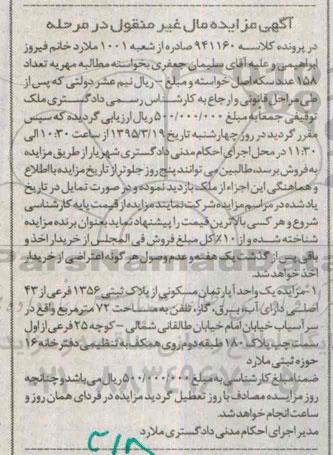 آگهی مزایده مال غیر منقول در مرحله
در پرونده کلاسه ۹۴۱۱۶۰ صادره از شعبه ۱۰۰۱ ملارد خانم فیروز
ابراهیمی و علیه آقای سلیمان جعفری بخواسته مطالبه مهریه تعداد
۱۵۸ عدد سکه اصل خواسته و مبلغ -ریال نیم عشر دولتی که پس از
طی مراحل قانونی و ارجاع به کارشناس رسمی دادگستری ملک
توقیفی جمعا به مبلغ ۵۰۰/۰۰۰/۰۰۰ ریال ارزیابی گردیده که سپس
مقرر گردید در روز چهارشنبه تاریخ ۱۳۹۵/۳/۱۹ از ساعت ۱۰:۳۰ الی
۱۱:۳۰ در محل اجرای احکام مدنی دادگستری شهریار از طریق مزایده
به فروش برسد، طالبین می توانند پنج روز جلوتر از تاریخ مزایده با اطلاع
و هماهنگی این اجراء از ملک بازدید نموده و در صورت تمایل در تاریخ
یاد شده در مراسم مزایده شرکت نمایند مزایده از قیمت پایه کارشناسی
شروع و هر کسی بالاترین قیمت را پیشنهاد نماید بعنوان برنده مزایده
شناخته شده و از ۱۰٪ کل مبلغ فروش فی المجلس از خریدار اخذ و
باقی پس از گذشت یک هفته و عدم وصول هر گونه اعتراضی از خریدار
اخذ خواهد شد.
۱-مزایده یک واحد آپارتمان مسکونی از پلاک ثبتی ۱۳۵۶ فرعی از ۴۳
اصلی دارای آب، برق، گاز، تلفن به مساحت ۷۲ مترمربع واقع در
سرآسیاب خیابان امام خیابان طالقانی شمالی - کوچه ۲۵ فرعی از اول
سمت چپ پلاک ۱۸۰ طبقه دوم روی همکف به تنظیمی دفترخانه ۱۶
حوزه ثبتی ملارد
ضمنا مبلغ کارشناسی به مبلغ ۵۰۰/۰۰۰/۰۰۰ ریال می باشد و چنانچه
روز مزایده مصادف با روز تعطیل گردید مزایده در فردای همان روز و
ساعت انجام خواهد شد.
مدیر اجرای احکام مدنی دادگستری ملارد